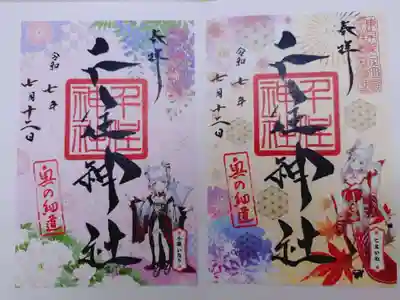 奉拝
千住神社
千住神社
令和七年
七月十二日
奥の細道
奉拝
千住神社
千住神社
令和七年
七月十二日
奥の細道